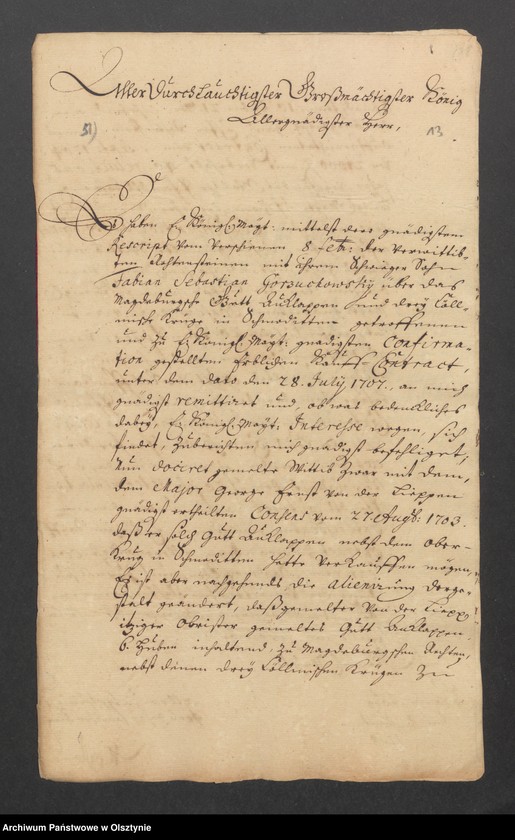 AllerDurchlauchtigster Großmächtigster König
Allergnädigster Herr,
51)
13
Es haben E: Königl: Mayt: mittelst dero gnädigstem
Rescript vom verschienen 8 Febr: der verwittib-
ten mit ihrem Schwieger Sohn
Fabian Sebastian Gorzuchowsky über das
Magdeburgsche Gutt Auklappen und drey Cöll-
mische Krüge in Schmoditten getroffenen
und zu E: Königl: Mayt: gnädigsten Confirma-
tion gestellten Erblichen Kauff Contract,
unter dem dato den 28. July 1707. an mich
gnädigst remittiret und, ob was bedenckliches
dabey, E: Königl: Mayt: Interesse wegen, sich
findet, zuberichten mich gnädigst befehliget,
Nun dociret gemelte Wittib zwar mit dem,
dem Major George Ernst von der Lieppen
gnädigst ertheilten Consens vom 27 Augb: 1703.
daß er solch Gutt Auklappen nebst dem Ober-
Krug in Schmoditten hätte verkauffen mögen,
Es ist aber nachgehends die alienirung derge-
stalt geändert, daß gemelter von der Liepp
itziger Obrister gemeltes Gutt Auklappen
6. Huben inhaltend, zu Magdeburgschen Rechten,
nebst denen drey Cöllmischen Krügen zu
Archiwum Państwowe w Olsztynie